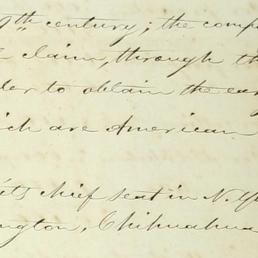 9th century; the comp
claim, through th
der to obtain the ea
ich are American
its chief seat in N. Yo
ngton, Chihuahua